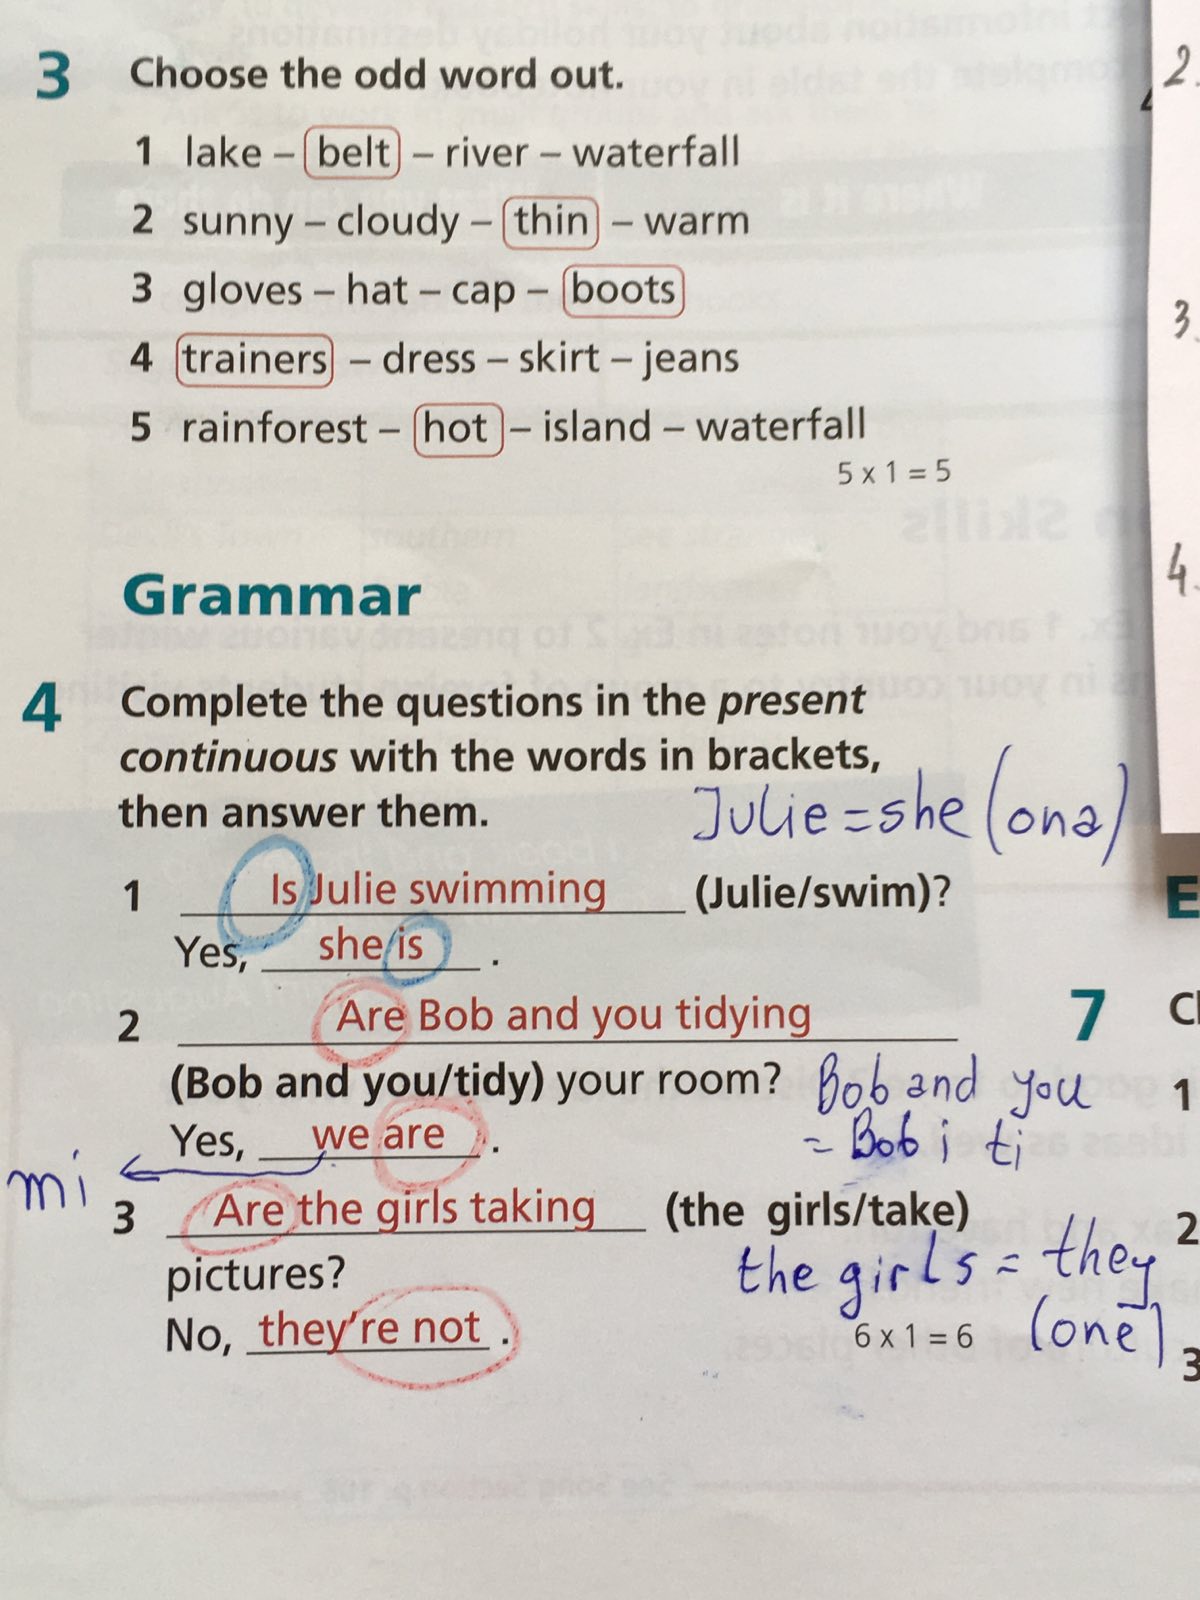 3 Choose the odd word out.
1 lake – belt – river – waterfall
2 sunny – cloudy – thin – warm
3 gloves – hat – cap – boots
4 trainers – dress – skirt – jeans
5 rainforest – hot – island – waterfall
5 x 1 = 5
Grammar
4 Complete the questions in the present
continuous with the words in brackets,
then answer them.
Julie = she (ona)
1 Is Julie swimming (Julie/swim)?
Yes, she is .
2 Are Bob and you tidying
(Bob and you/tidy) your room?
Bob and you
= Bob i ti
Yes, we are .
mi
3 Are the girls taking (the girls/take)
pictures?
the girls = they
(one)
No, they're not .
6 x 1 = 6
2.
3.
4.
E
7
1
2
3